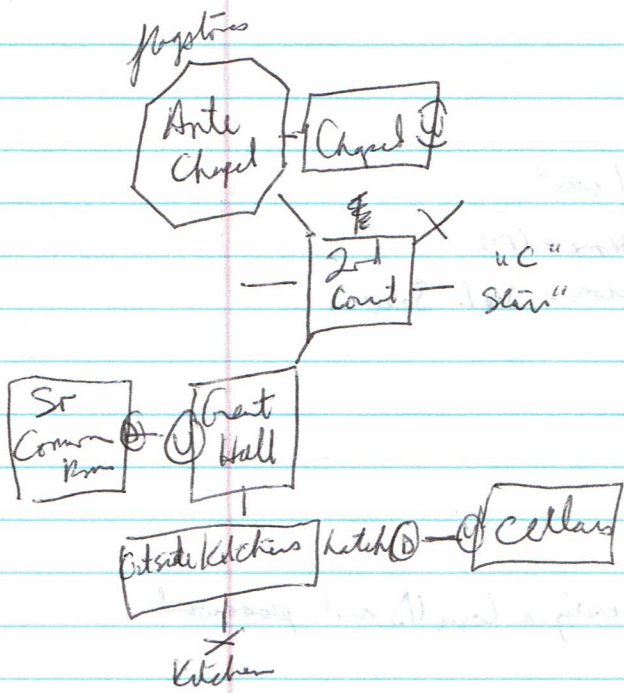 flagstones
Ante
Chapel
Chapel U
2nd
Court
"C"
Stair"
Sr
Common
Rm
D
U
Great
Hall
Outside Kitchens
hatch D
U
Cellars
Kitchen